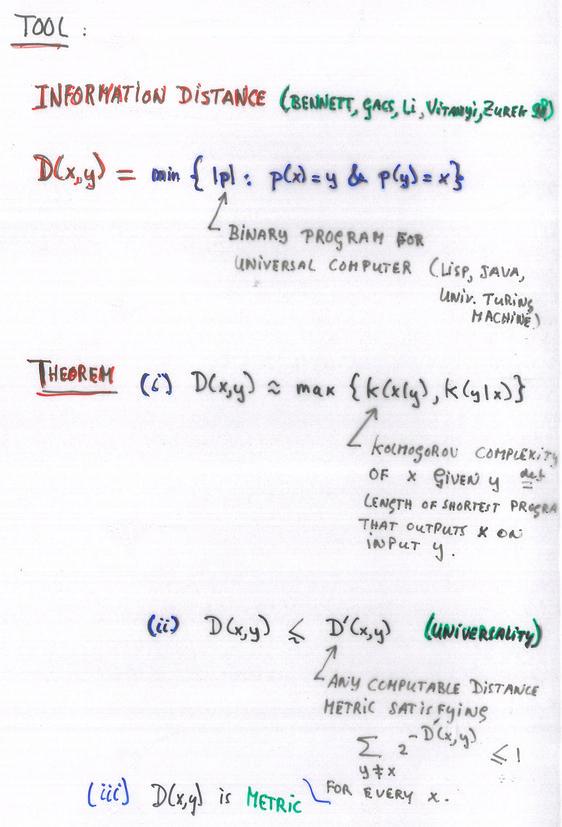 TOOL :
INFORMATION DISTANCE (BENNETT, GACS, Li, Vitanyi, ZUREK 98)
D(x,y) = min { |p| : p(x)=y & p(y)=x }
BINARY PROGRAM FOR
UNIVERSAL COMPUTER (LISP, JAVA,
UNIV. TURING
MACHINE)
THEOREM (i) D(x,y) ≈ max { K(x|y), K(y|x) }
KOLMOGOROV COMPLEXITY
OF x GIVEN y def =
LENGTH OF SHORTEST PROGRA
THAT OUTPUTS x ON
INPUT y.
(ii) D(x,y) ≲ D'(x,y) (UNIVERSALITY)
ANY COMPUTABLE DISTANCE
METRIC SATISFYING
∑ y≠x 2^-D'(x,y) ≤ 1
FOR EVERY x.
(iii) D(x,y) is METRIC